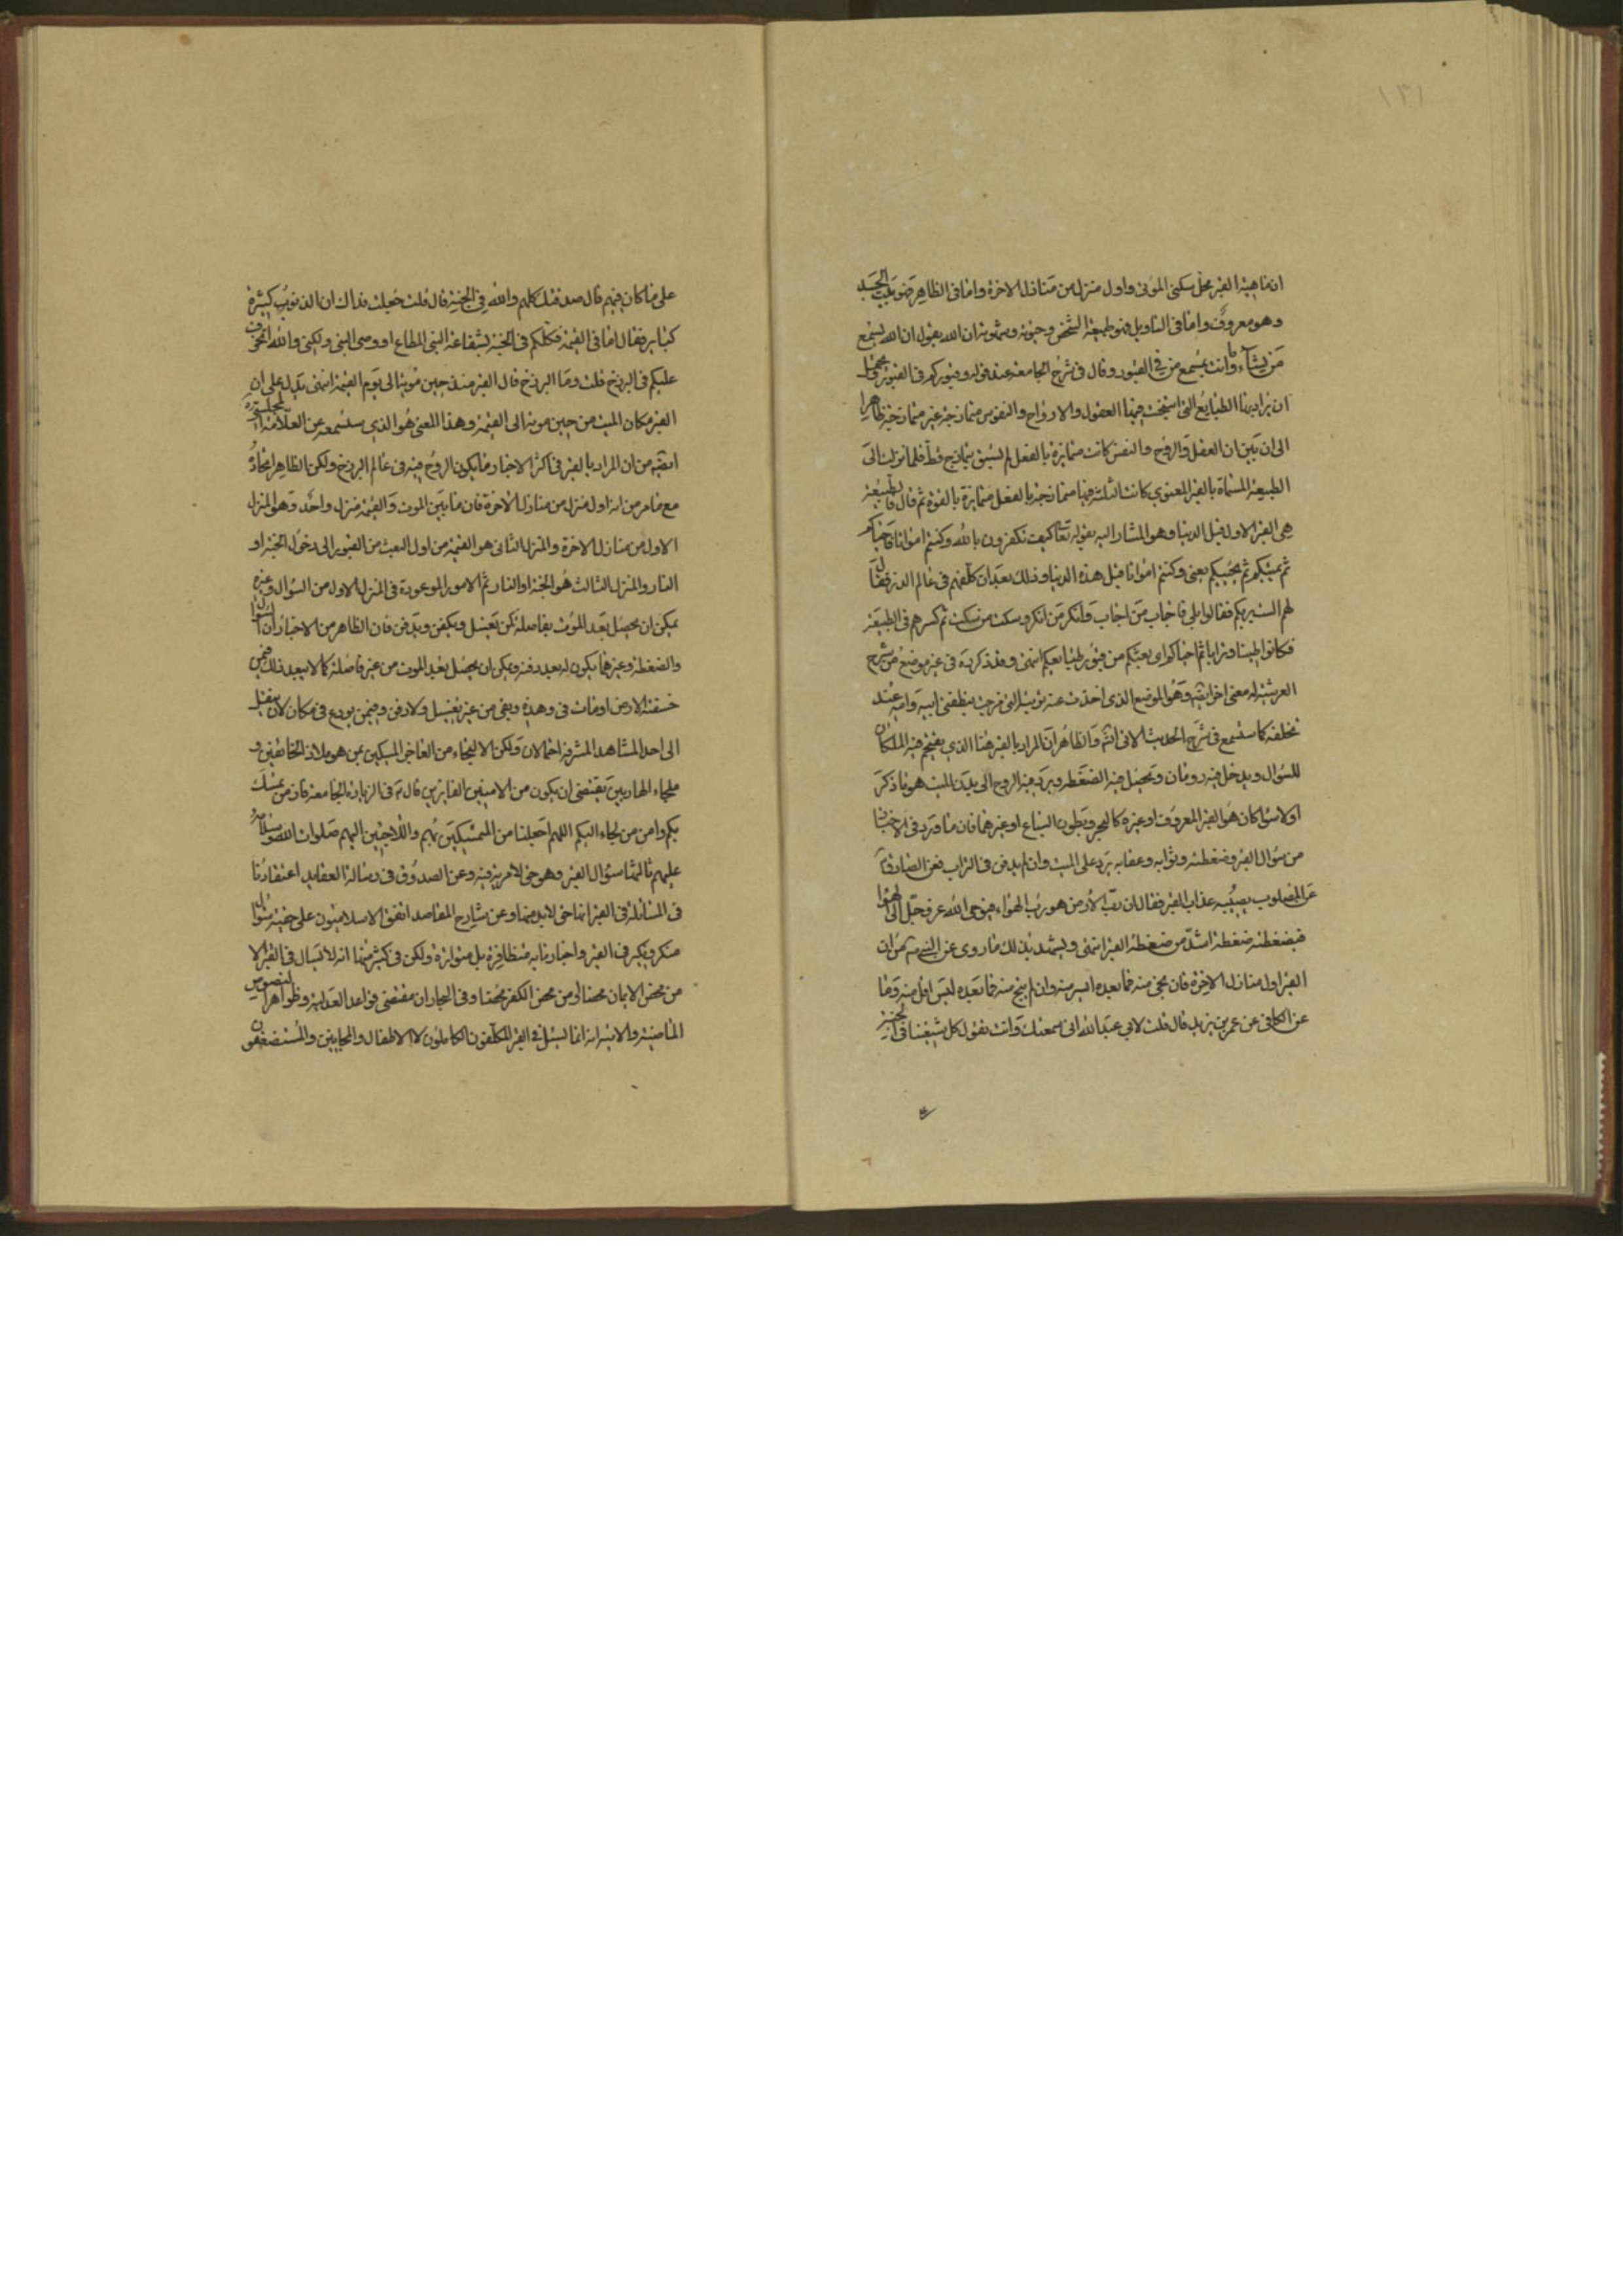 ١٣١
ان ماهية القبر محل سكنى الموتى واول منزل من منازل الاخرة واما فى الظاهر فهو بيت الجسد
وهو معروف واما فى التاويل فهو طبيعة الشخص وحيوته وشهوته ان الله يقول ان الله يسمع
من يشاء وما انت بمسمع من فى القبور وقال فى شرح الجامعة عند قوله وقبوركم فى القبور يحتمل
ان يراد بها الطبايع التى فيها العقول والارواح والنفوس متمازجة غير متمايزة ظاهرا
الى ان بين ان العقل والروح والنفس كانت متمايزة بالفعل لم يسبق تمازج قط فلما نزلت الى
الطبيعة المسماة بالقبر المعنوى كانت الثلثة فيها متمازجة بالفعل متمايزة بالقوة ثم قال فالطبيعة
هى القبر الاول قبل الدنيا وهو المشار اليه بقوله تعا كيف تكفرون بالله وكنتم امواتا فاحياكم
ثم يميتكم ثم يحييكم يعنى وكنتم امواتا قبل هذه الدنيا وذلك بعد ان كلفهم فى عالم الذر فقال
لهم الست بربكم فقالوا بلى فاجاب من اجاب وانكر من انكر وسكت من سكت ثم كسرهم فى الطبيعة
فكانوا طينا وترابا ثم احياكم اى بعثكم من قبور طبايعكم انتهى وقد ذكر ره فى غير موضع من شرح
العرشية له معنى اخر ايضا وهو الموضع الذى اخذت عنه تربته التى مزجت بنطفتى ابيه وامه عند
تخلقه كما ستسمع فى شرح الحديث الاتى انشم والظاهر ان المراد بالقبر هنا الذى يقتحم فيه الملكان
للسؤال ويدخل فيه رومان وتحصل فيه الضغطة ويرد فيه الروح الى بدن الميت هو ما ذكر
اولا سواء كان هو القبر المعروف او غيره كالبحر وبطون السباع او غيرهما فان ما ورد فى الاخبار
من سؤال القبر وضغطته وثوابه وعقابه يرد على الميت وان لم يدفن فى التراب فعن الصادق ع
عن المصلوب يصيبه عذاب القبر فقال ان رب الارض هو رب الهواء فيوحى الله عز وجل الى الهواء
فيضغطه ضغطة اشد من ضغطة القبر انتهى ويشهد بذلك ما روى عن النبى ص من ان
القبر اول منازل الاخرة فان نجى منه فما بعده ايسر منه وان لم ينج منه فما بعده ليس اقل منه وما
عن الكافى عن عمر بن يزيد قال قلت لابى عبد الله انى سمعتك وانت تقول كل شيعتنا فى الجنة
على ما كان فيهم قال صدقتك كلهم والله فى الجنة قال قلت جعلت فداك ان الذنوب كثيرة
كباير فقال اما فى القيمة فكلكم فى الجنة بشفاعة النبى المطاع او وصى النبى ولكنى والله اتخوف
عليكم فى البرزخ قلت وما البرزخ قال القبر منذ حين موته الى يوم القيمة انتهى يدل على ان
القبر مكان الميت من حين موته الى القيمة وهذا المعنى هو الذى ستسمعه عن العلامة المجلسى ره
ايضا من ان المراد بالقبر فى اكثر الاخبار ما يكون الروح فيه فى عالم البرزخ ولكن الظاهر اتحاده
مع ما مر من انه اول منزل من منازل الاخرة فان ما بين الموت والقيمة منزل واحد وهو المنزل
الاول من منازل الاخرة والمنزل الثانى هو القيمة من اول البعث من القبور الى دخول الجنة او
النار والمنزل الثالث هو الجنة او النار ثم الامور الموجودة فى المنزل الاول من السؤال وغيره
يمكن ان يحصل بعد الموت بفاصلة كمن يغسل ويكفن ويدفن فان الظاهر من الاخبار ان السؤال
والضغطة وغيرهما يكون له بعد دفنه ويمكن ان يحصل بعد الموت من غير فاصلة كما لا يبعد ذلك فيمن
خسفته الارض او مات فى وهدة وبقى من غير تغسيل ولا دفن وفيمن يودع فى مكان لان ينقل
الى احد المشاهد المشرفة احتمالان ولكن الالتجاء من العاجز المسكين بمن هو ملاذ الخائفين و
ملجاء الهاربين يقتضى ان يكون من الامنين الفايزين قال ع فى الزيارة الجامعة فاز من تمسك
بكم وامن من لجاء اليكم اللهم اجعلنا من المتمسكين بهم واللاجئين اليهم صلوات الله وسلامه
عليهم ثالثها سؤال القبر وهو حق لا مرية فيه وعن الصدوق فى رسالة العقايد اعتقادنا
فى المسائلة فى القبر انها حق لابد منها وعن شارح المقاصد اتفق الاسلاميون على حقية سؤال
منكر ونكير فى القبر واخبارنا به متظافرة بل متواترة ولكن فى كثير منها انه لا يسال فى القبر الا
من محض الايمان محضا او من محض الكفر محضا وفى البحار ان مقتضى قواعد العدلية وظواهر النصوص
الماضية والاتية انه انما يسئل فى القبر المكلفون الكاملون لا الاطفال والمجانين والمستضعفون